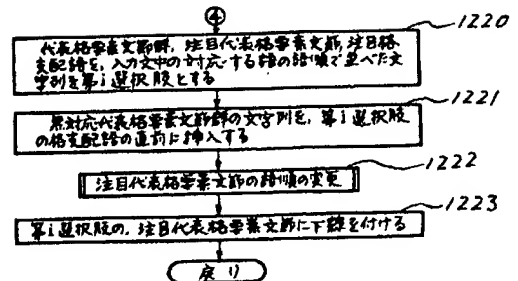 ④
1220
代表格要素文節群,注目代表格要素文節,注目格
支配語を,入力文中の対応する語の語順で並べた文
字列を第i選択肢とする
1221
無対応代表格要素文節群の文字列を,第i選択肢
の格支配語の直前に挿入する
1222
注目代表格要素文節の語順の変更
1223
第i選択肢の,注目代表格要素文節に下線を付ける
戻り